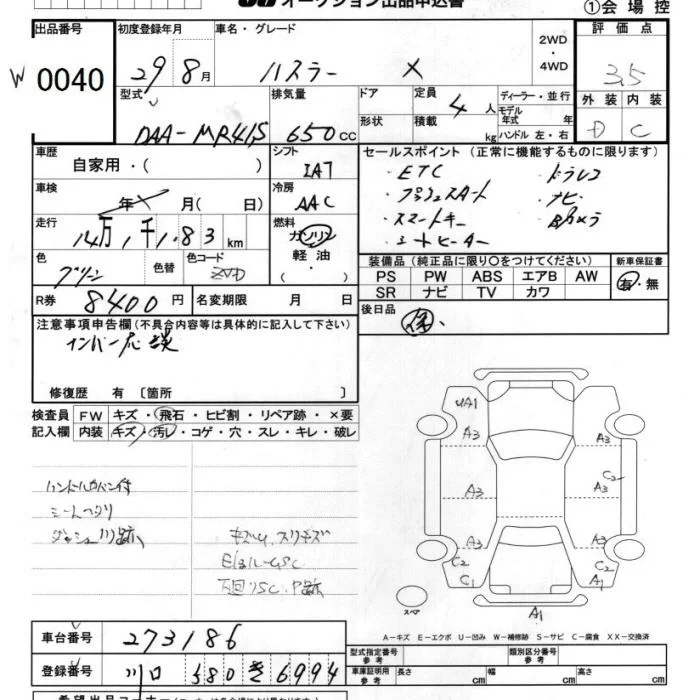 オークション出品申込書
①会場控
出品番号 初度登録年月 車名・グレード 評価点
W 0040 29 8月 ハスラー X 2WD・4WD 3.5
型式 排気量 ドア 定員 ディーラー・並行 外装 内装
DAA-MR41S 650cc 形状 積載 4人 kg モデル年式 年 ハンドル 左・右 D C
車歴 シフト セールスポイント(正常に機能するものに限ります)
自家用・( ) IAT ・ETC ・ドラレコ
車検 冷房 ・プッシュスタート ・ナビ
年 月(日) AAC ・スマートキー ・Bカメラ
走行 燃料 ・シートヒーター
14万1千183km ガソリン
軽油・( )
色 色替 色コード 装備品(純正品に限り○をつけてください) 新車保証書
グリーン ZVD PS PW ABS エアB AW 有・無
SR ナビ TV カワ
R券 8400円 名変期限 月 日 後日品
注意事項申告欄(不具合内容等は具体的に記入して下さい)
修復歴 有 〔箇所 〕
検査員 FW キズ・飛石・ヒビ割・リペア跡・×要
記入欄 内装 キズ・汚レ・コゲ・穴・スレ・キレ・破レ
ハンドルカバー付
シートヘタリ
ダッシュ川跡
キズ凹、スリキズ
UA1
A3 A3
A3 C2 A3
A3 A3
C2 C2
C1 A1
スペア A1
A-キズ E-エクボ U-凹み W-補修跡 S-サビ C-腐食 XX-交換済
車台番号 273186 型式指定番号 参考 類別区分番号 参考
登録番号 川口 580 き 6994 車庫証明用 参考 長さ cm 幅 cm 高さ cm